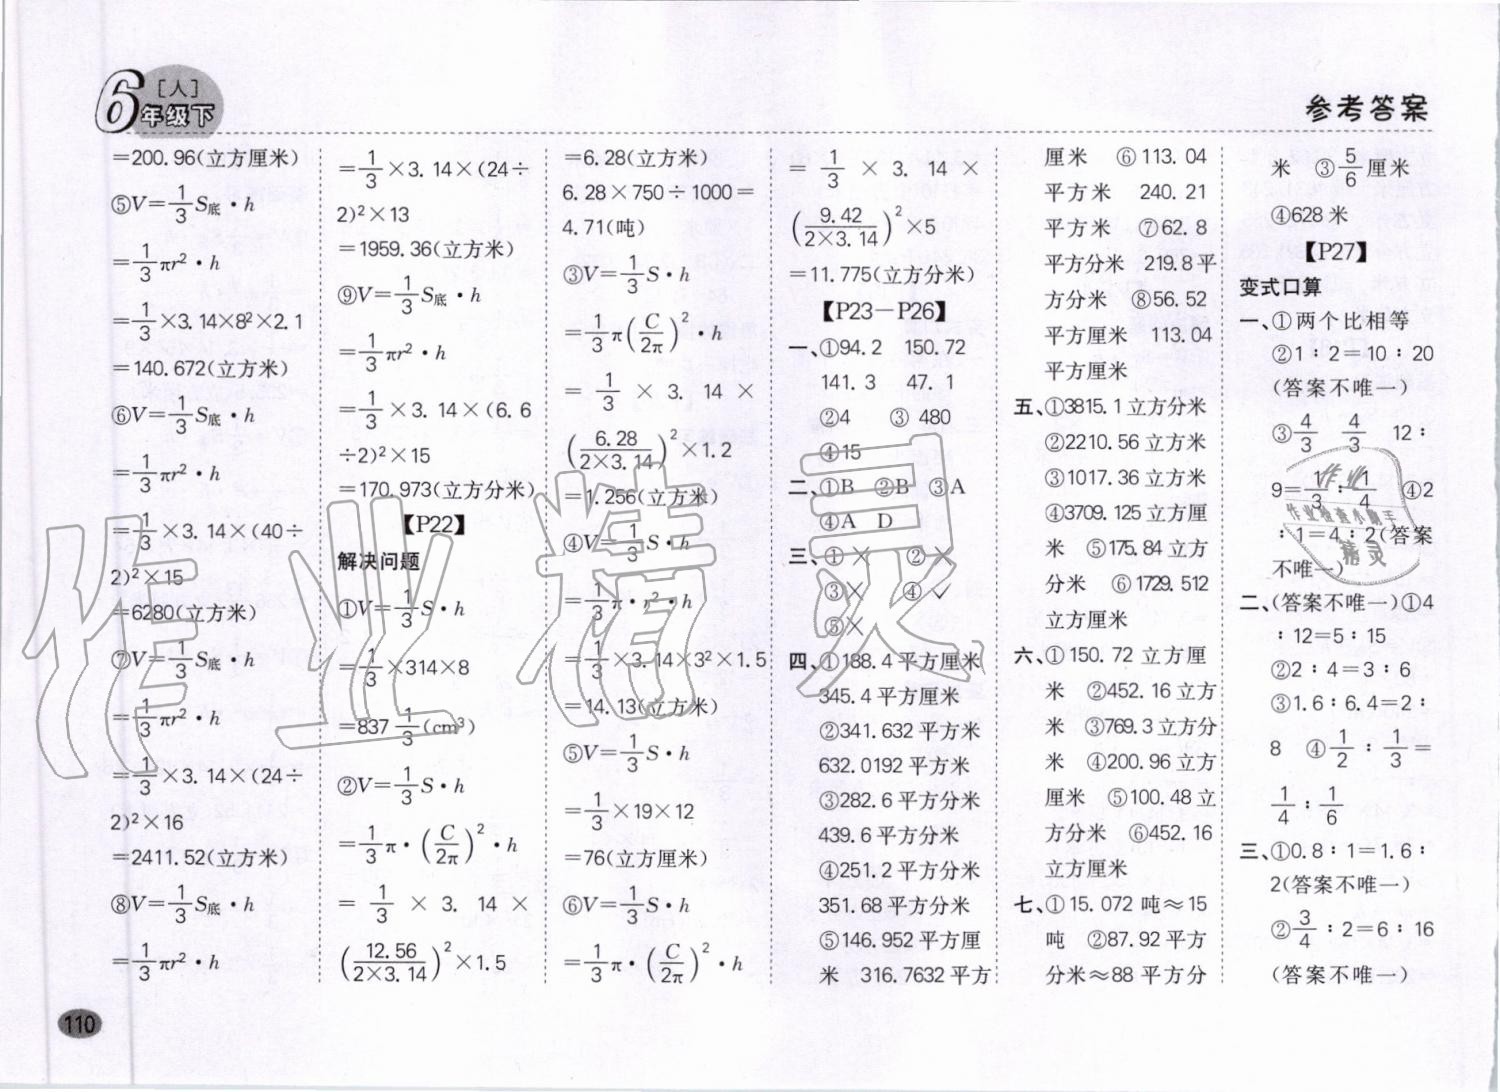 6 [人]
年级下
参考答案
=200.96(立方厘米)
⑤V=1/3 S底·h
=1/3 πr²·h
=1/3×3.14×8²×2.1
=140.672(立方米)
⑥V=1/3 S底·h
=1/3 πr²·h
=1/3×3.14×(40÷
2)²×15
=6280(立方米)
⑦V=1/3 S底·h
=1/3 πr²·h
=1/3×3.14×(24÷
2)²×16
=2411.52(立方米)
⑧V=1/3 S底·h
=1/3 πr²·h
=1/3×3.14×(24÷
2)²×13
=1959.36(立方米)
⑨V=1/3 S底·h
=1/3 πr²·h
=1/3×3.14×(6.6
÷2)²×15
=170.973(立方分米)
【P22】
解决问题
①V=1/3 S·h
=1/3×314×8
=837 1/3(cm³)
②V=1/3 S·h
=1/3 π·(C/2π)²·h
=1/3×3.14×
(12.56/2×3.14)²×1.5
=6.28(立方米)
6.28×750÷1000=
4.71(吨)
③V=1/3 S·h
=1/3 π(C/2π)²·h
=1/3×3.14×
(6.28/2×3.14)²×1.2
=1.256(立方米)
④V=1/3 S·h
=1/3 π·r²·h
=1/3×3.14×3²×1.5
=14.13(立方米)
⑤V=1/3 S·h
=1/3×19×12
=76(立方厘米)
⑥V=1/3 S·h
=1/3 π·(C/2π)²·h
=1/3×3.14×
(9.42/2×3.14)²×5
=11.775(立方分米)
【P23－P26】
一、①94.2 150.72
141.3 47.1
②4 ③480
④15
二、①B ②B ③A
④A D
三、①× ②×
③× ④✓
⑤×
四、①188.4平方厘米
345.4平方厘米
②341.632平方米
632.0192平方米
③282.6平方分米
439.6平方分米
④251.2平方分米
351.68平方分米
⑤146.952平方厘
米 316.7632平方
厘米 ⑥113.04
平方米 240.21
平方米 ⑦62.8
平方分米 219.8平
方分米 ⑧56.52
平方厘米 113.04
平方厘米
五、①3815.1立方分米
②2210.56立方米
③1017.36立方米
④3709.125立方厘
米 ⑤175.84立方
分米 ⑥1729.512
立方厘米
六、①150.72立方厘
米 ②452.16立方
米 ③769.3立方分
米 ④200.96立方
厘米 ⑤100.48立
方分米 ⑥452.16
立方厘米
七、①15.072吨≈15
吨 ②87.92平方
分米≈88平方分
米 ③5/6厘米
④628米
【P27】
变式口算
一、①两个比相等
②1：2=10：20
(答案不唯一)
③4/3 4/3 12：
9=1/3：1/4 ④2
：1=4：2(答案
不唯一)
二、(答案不唯一)①4
：12=5：15
②2：4=3：6
③1.6：6.4=2：
8 ④1/2：1/3=
1/4：1/6
三、①0.8：1=1.6：
2(答案不唯一)
②3/4：2=6：16
(答案不唯一)
110
作业精灵
作业
作业检查小助手
精灵